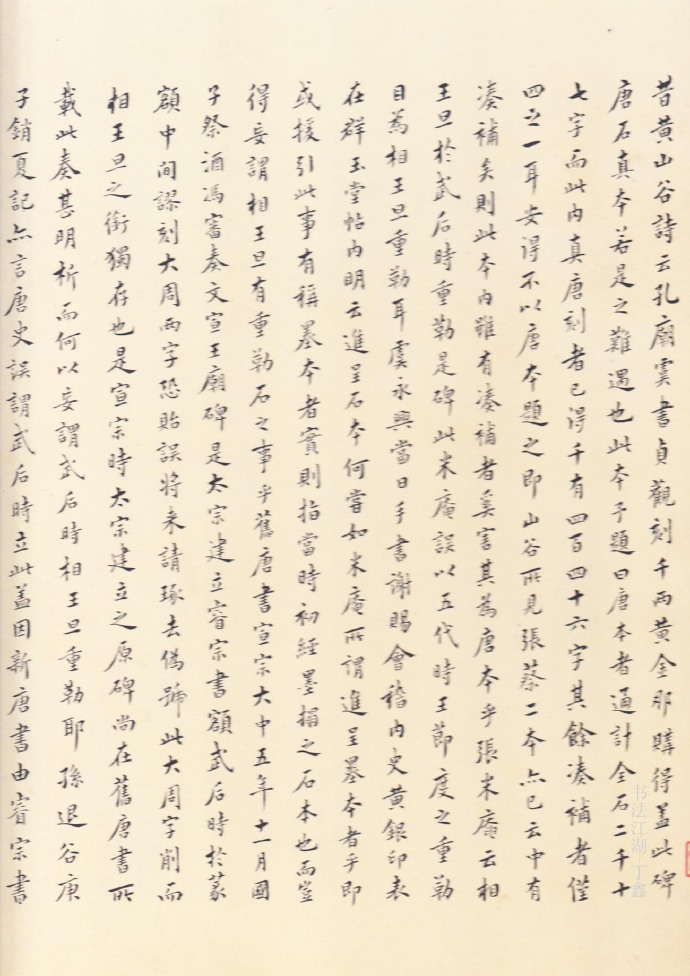 昔黄山谷詩云孔廟虞書貞觀刻千兩黄金那購得蓋此碑
唐石真本若是之難遇也此本予題曰唐本者通計全石二千十
七字而此内真唐刻者已得千有四百四十六字其餘湊補者僅
四之一耳安得不以唐本題之即山谷所見張蔡二本亦已云中有
湊補矣則此本内雖有湊補者奚害其為唐本乎張米庵云相
王旦於武后時重勒是碑此米庵誤以五代時王節度之重勒
目為相王旦重勒耳虞永興當日手書謝賜會稽内史黄銀印表
在群玉堂帖内明云進呈石本何嘗如米庵所謂進呈墨本者乎即
或援引此事有稱墨本者實則指當時初經墨搨之石本也而豈
得妄謂相王旦有重勒石之事乎舊唐書宣宗大中五年十一月國
子祭酒馮審奏文宣王廟碑是太宗建立睿宗書額武后時於篆
額中間謬刻大周兩字恐貽誤將来請琢去偽號此大周字削而
相王旦之銜獨存也是宣宗時太宗建立之原碑尚在舊唐書所
載此奏甚明析而何以妄謂武后時相王旦重勒耶 孫退谷庚
子銷夏記亦言唐史誤謂武后時立此蓋因新唐書由睿宗書
书法江湖 丁鑫